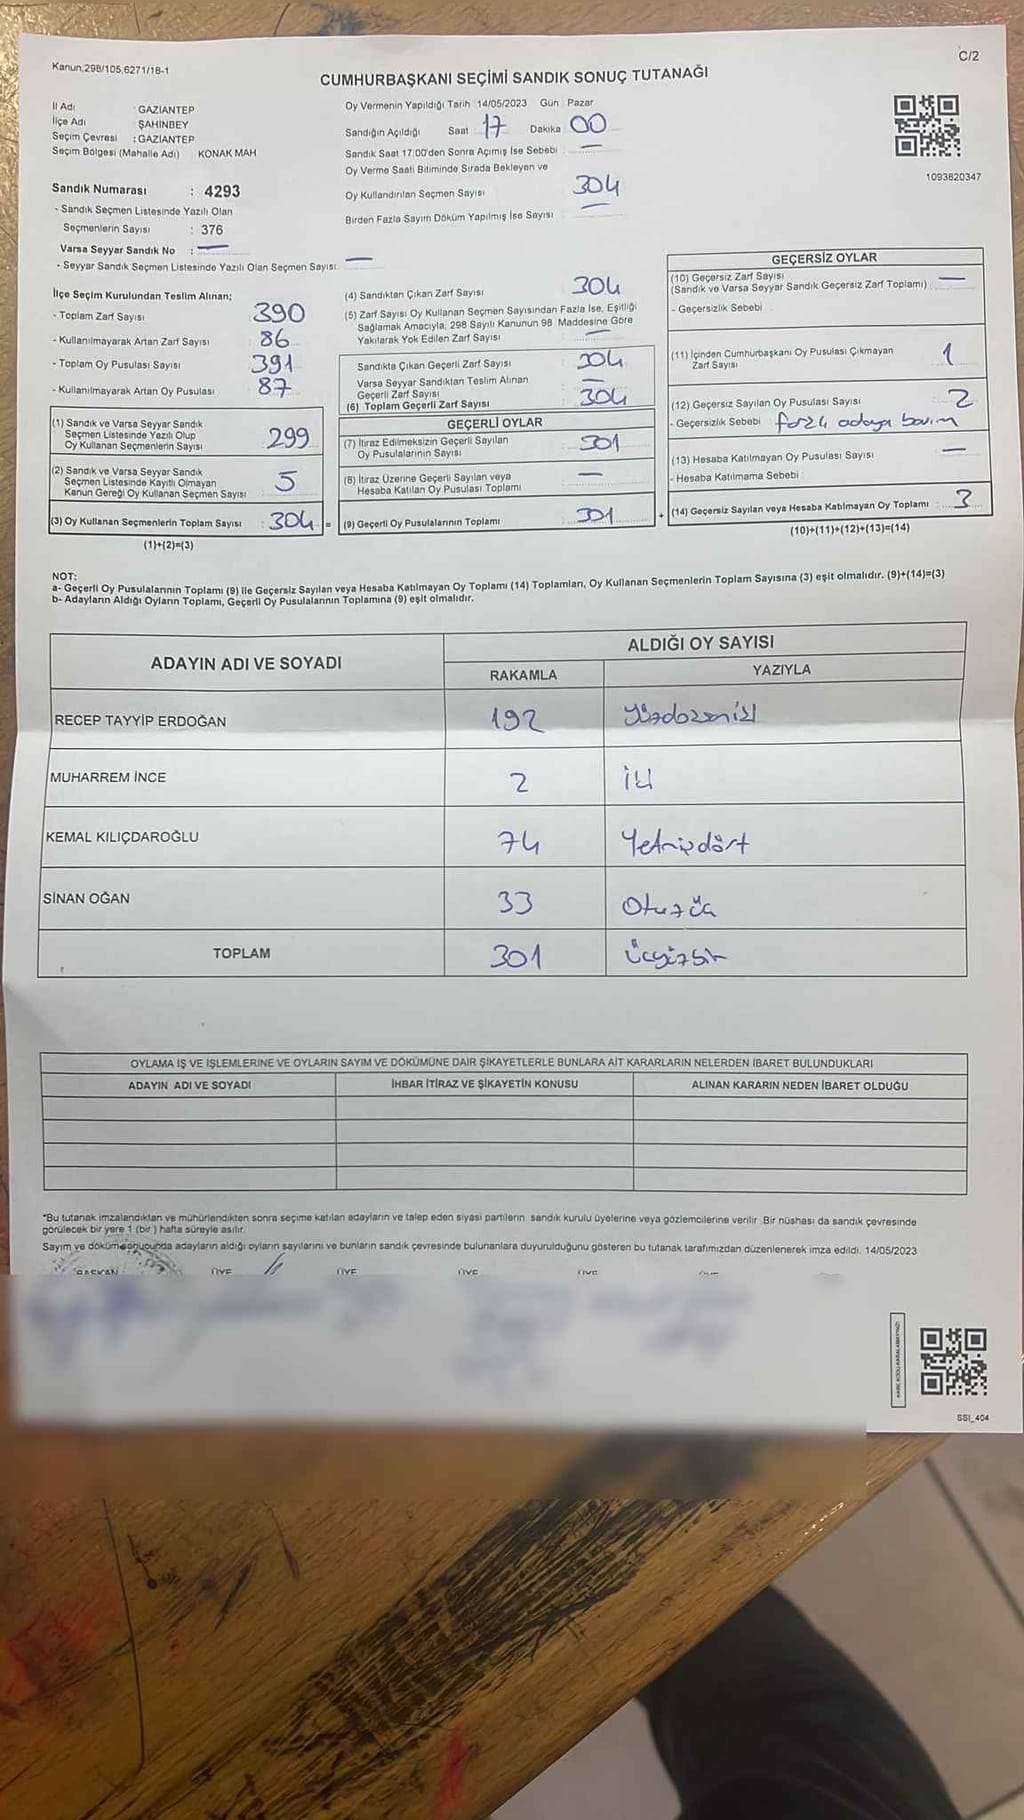 Kanun:298/105,6271/18-1
C/2
CUMHURBAŞKANI SEÇİMİ SANDIK SONUÇ TUTANAĞI
İl Adı : GAZİANTEP
İlçe Adı : ŞAHİNBEY
Seçim Çevresi : GAZİANTEP
Seçim Bölgesi (Mahalle Adı) KONAK MAH
Sandık Numarası : 4293
- Sandık Seçmen Listesinde Yazılı Olan
Seçmenlerin Sayısı : 376
Varsa Seyyar Sandık No : —
- Seyyar Sandık Seçmen Listesinde Yazılı Olan Seçmen Sayısı: —
Oy Vermenin Yapıldığı Tarih :14/05/2023 Gün : Pazar
Sandığın Açıldığı Saat : 17 Dakika : 00
Sandık Saat 17:00'den Sonra Açılmış İse Sebebi : —
Oy Verme Saati Bitiminde Sırada Bekleyen ve
Oy Kullandırılan Seçmen Sayısı 304
Birden Fazla Sayım Döküm Yapılmış İse Sayısı : —
1093820347
İlçe Seçim Kurulundan Teslim Alınan;
- Toplam Zarf Sayısı 390
- Kullanılmayarak Artan Zarf Sayısı : 86
- Toplam Oy Pusulası Sayısı : 391
- Kullanılmayarak Artan Oy Pusulası : 87
(1) Sandık ve Varsa Seyyar Sandık
Seçmen Listesinde Yazılı Olup
Oy Kullanan Seçmenlerin Sayısı 299
(2) Sandık ve Varsa Seyyar Sandık
Seçmen Listesinde Kayıtlı Olmayan
Kanun Gereği Oy Kullanan Seçmen Sayısı : 5
(3) Oy Kullanan Seçmenlerin Toplam Sayısı : 304 =
(1)+(2)=(3)
(4) Sandıktan Çıkan Zarf Sayısı : 304
(5) Zarf Sayısı Oy Kullanan Seçmen Sayısından Fazla İse, Eşitliği
Sağlamak Amacıyla, 298 Sayılı Kanunun 98. Maddesine Göre
Yakılarak Yok Edilen Zarf Sayısı : —
Sandıkta Çıkan Geçerli Zarf Sayısı : 304
Varsa Seyyar Sandıktan Teslim Alınan
Geçerli Zarf Sayısı : —
(6) Toplam Geçerli Zarf Sayısı : 304
GEÇERLİ OYLAR
(7) İtiraz Edilmeksizin Geçerli Sayılan
Oy Pusulalarının Sayısı : 301
(8) İtiraz Üzerine Geçerli Sayılan veya
Hesaba Katılan Oy Pusulası Toplamı : —
(9) Geçerli Oy Pusulalarının Toplamı : 301 +
GEÇERSİZ OYLAR
(10) Geçersiz Zarf Sayısı
(Sandık ve Varsa Seyyar Sandık Geçersiz Zarf Toplamı) : —
- Geçersizlik Sebebi :
(11) İçinden Cumhurbaşkanı Oy Pusulası Çıkmayan
Zarf Sayısı : 1
(12) Geçersiz Sayılan Oy Pusulası Sayısı : 2
- Geçersizlik Sebebi : adaya
(13) Hesaba Katılmayan Oy Pusulası Sayısı : —
- Hesaba Katılmama Sebebi :
(14) Geçersiz Sayılan veya Hesaba Katılmayan Oy Toplamı : 3
(10)+(11)+(12)+(13)=(14)
NOT:
a- Geçerli Oy Pusulalarının Toplamı (9) ile Geçersiz Sayılan veya Hesaba Katılmayan Oy Toplamı (14) Toplamları, Oy Kullanan Seçmenlerin Toplam Sayısına (3) eşit olmalıdır. (9)+(14)=(3)
b- Adayların Aldığı Oyların Toplamı, Geçerli Oy Pusulalarının Toplamına (9) eşit olmalıdır.
ADAYIN ADI VE SOYADI
ALDIĞI OY SAYISI
RAKAMLA YAZIYLA
RECEP TAYYİP ERDOĞAN 192 Yüzdoksaniki
MUHARREM İNCE 2 iki
KEMAL KILIÇDAROĞLU 74 Yetmişdört
SİNAN OĞAN 33 Otuzüç
TOPLAM 301 Üçyüzbir
OYLAMA İŞ VE İŞLEMLERİNE VE OYLARIN SAYIM VE DÖKÜMÜNE DAİR ŞİKAYETLERLE BUNLARA AİT KARARLARIN NELERDEN İBARET BULUNDUKLARI
ADAYIN ADI VE SOYADI İHBAR İTİRAZ VE ŞİKAYETİN KONUSU ALINAN KARARIN NEDEN İBARET OLDUĞU
*Bu tutanak imzalandıktan ve mühürlendikten sonra seçime katılan adayların ve talep eden siyasi partilerin sandık kurulu üyelerine veya gözlemcilerine verilir. Bir nüshası da sandık çevresinde
görülecek bir yere 1 (bir ) hafta süreyle asılır.
Sayım ve döküm sonucunda adayların aldığı oyların sayılarını ve bunların sandık çevresinde bulunanlara duyurulduğunu gösteren bu tutanak tarafımızdan düzenlenerek imza edildi. 14/05/2023
BAŞKAN ÜYE ÜYE ÜYE ÜYE ÜYE
SSI_404